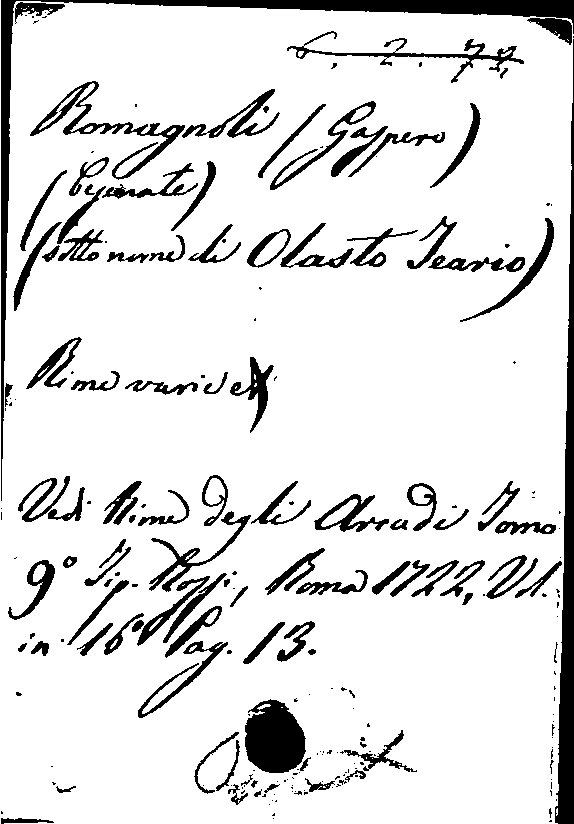 6. 2. 73
Romagnoli (Gaspero)
(Cesenate)
(sotto nome di Olasto Icario)
Rime varie
Vedi Rime degli Arcadi Tomo
9º Tip. Rossi, Roma 1722, Vol.
in 16º Pag. 13.